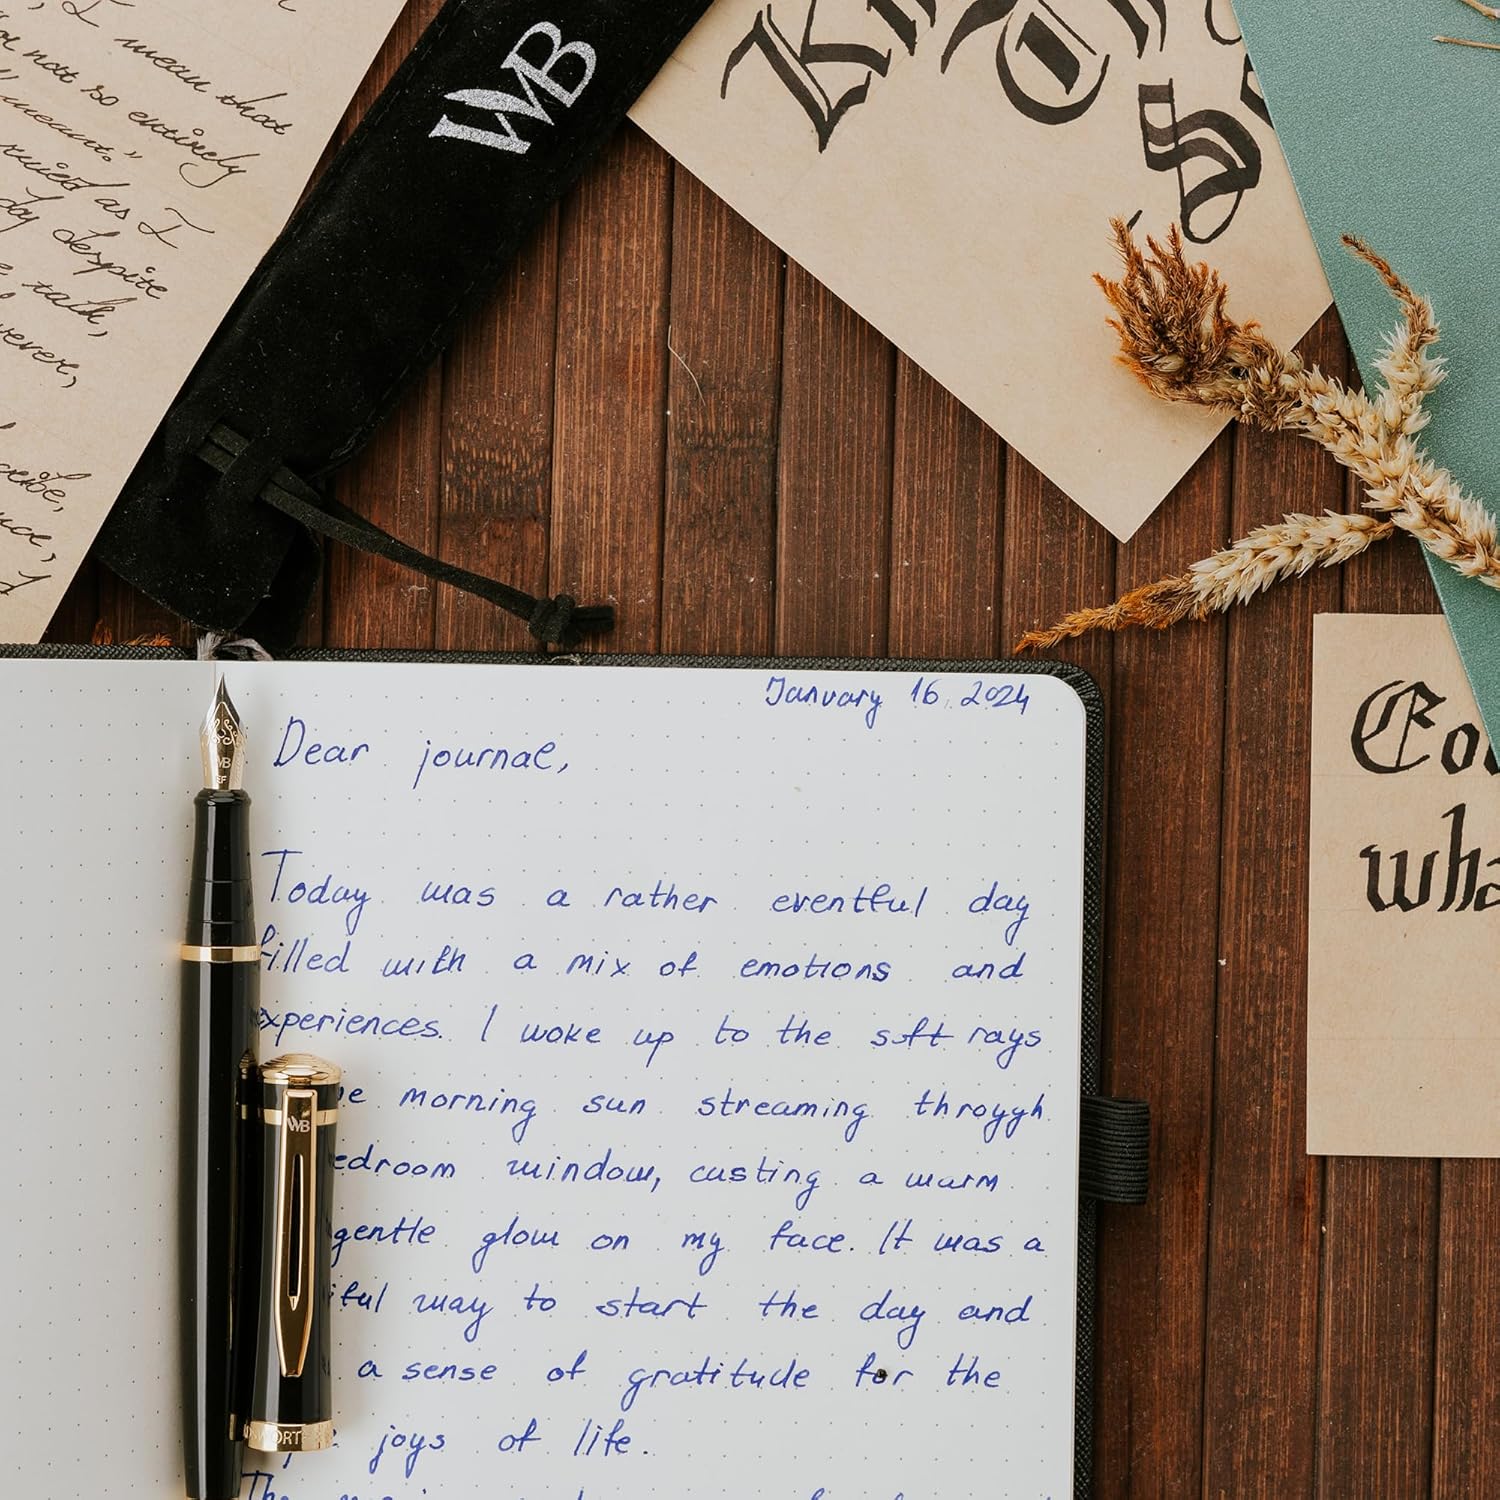 I mean that
not so entirely
meant."
ruied as I
day despite
talk,
WB
January 16, 2024
Dear journal,
Today was a rather eventful day
filled with a mix of emotions and
experiences. I woke up to the soft rays
morning sun streaming throygh
edroom window, casting a warm
gentle glow on my face. It was a
iful way to start the day and
a sense of gratitude for the
joys of life.
The
WB
EF
WB
Co
wha